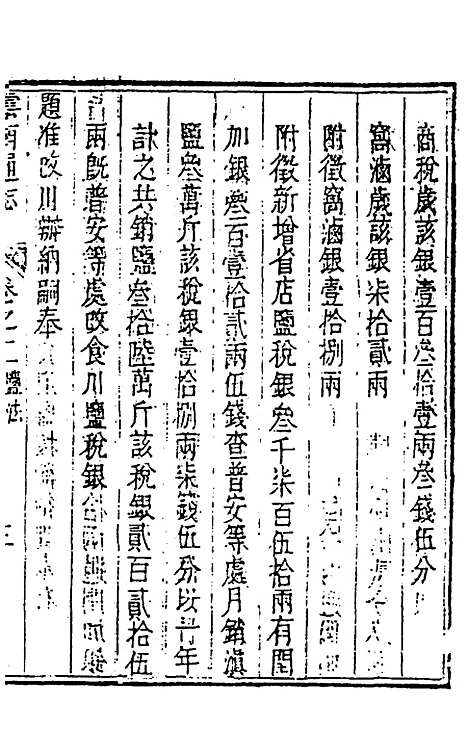 商稅歲該銀壹百叁拾壹兩叁錢伍分
窩滷歲該銀柒拾貳兩
附徵窩滷銀壹拾捌兩
附徵新增省店鹽稅銀叁千柒百伍拾兩有閏
加銀叁百壹拾貳兩伍錢查普安等處月銷滇
鹽叁萬斤該稅銀壹拾捌兩柒錢伍分以年
計之共銷鹽叁拾陸萬斤該稅銀貳百貳拾伍
兩旣普安等處改食川鹽稅銀
題准改川辦納嗣奉
雲南通志 卷之十一鹽法